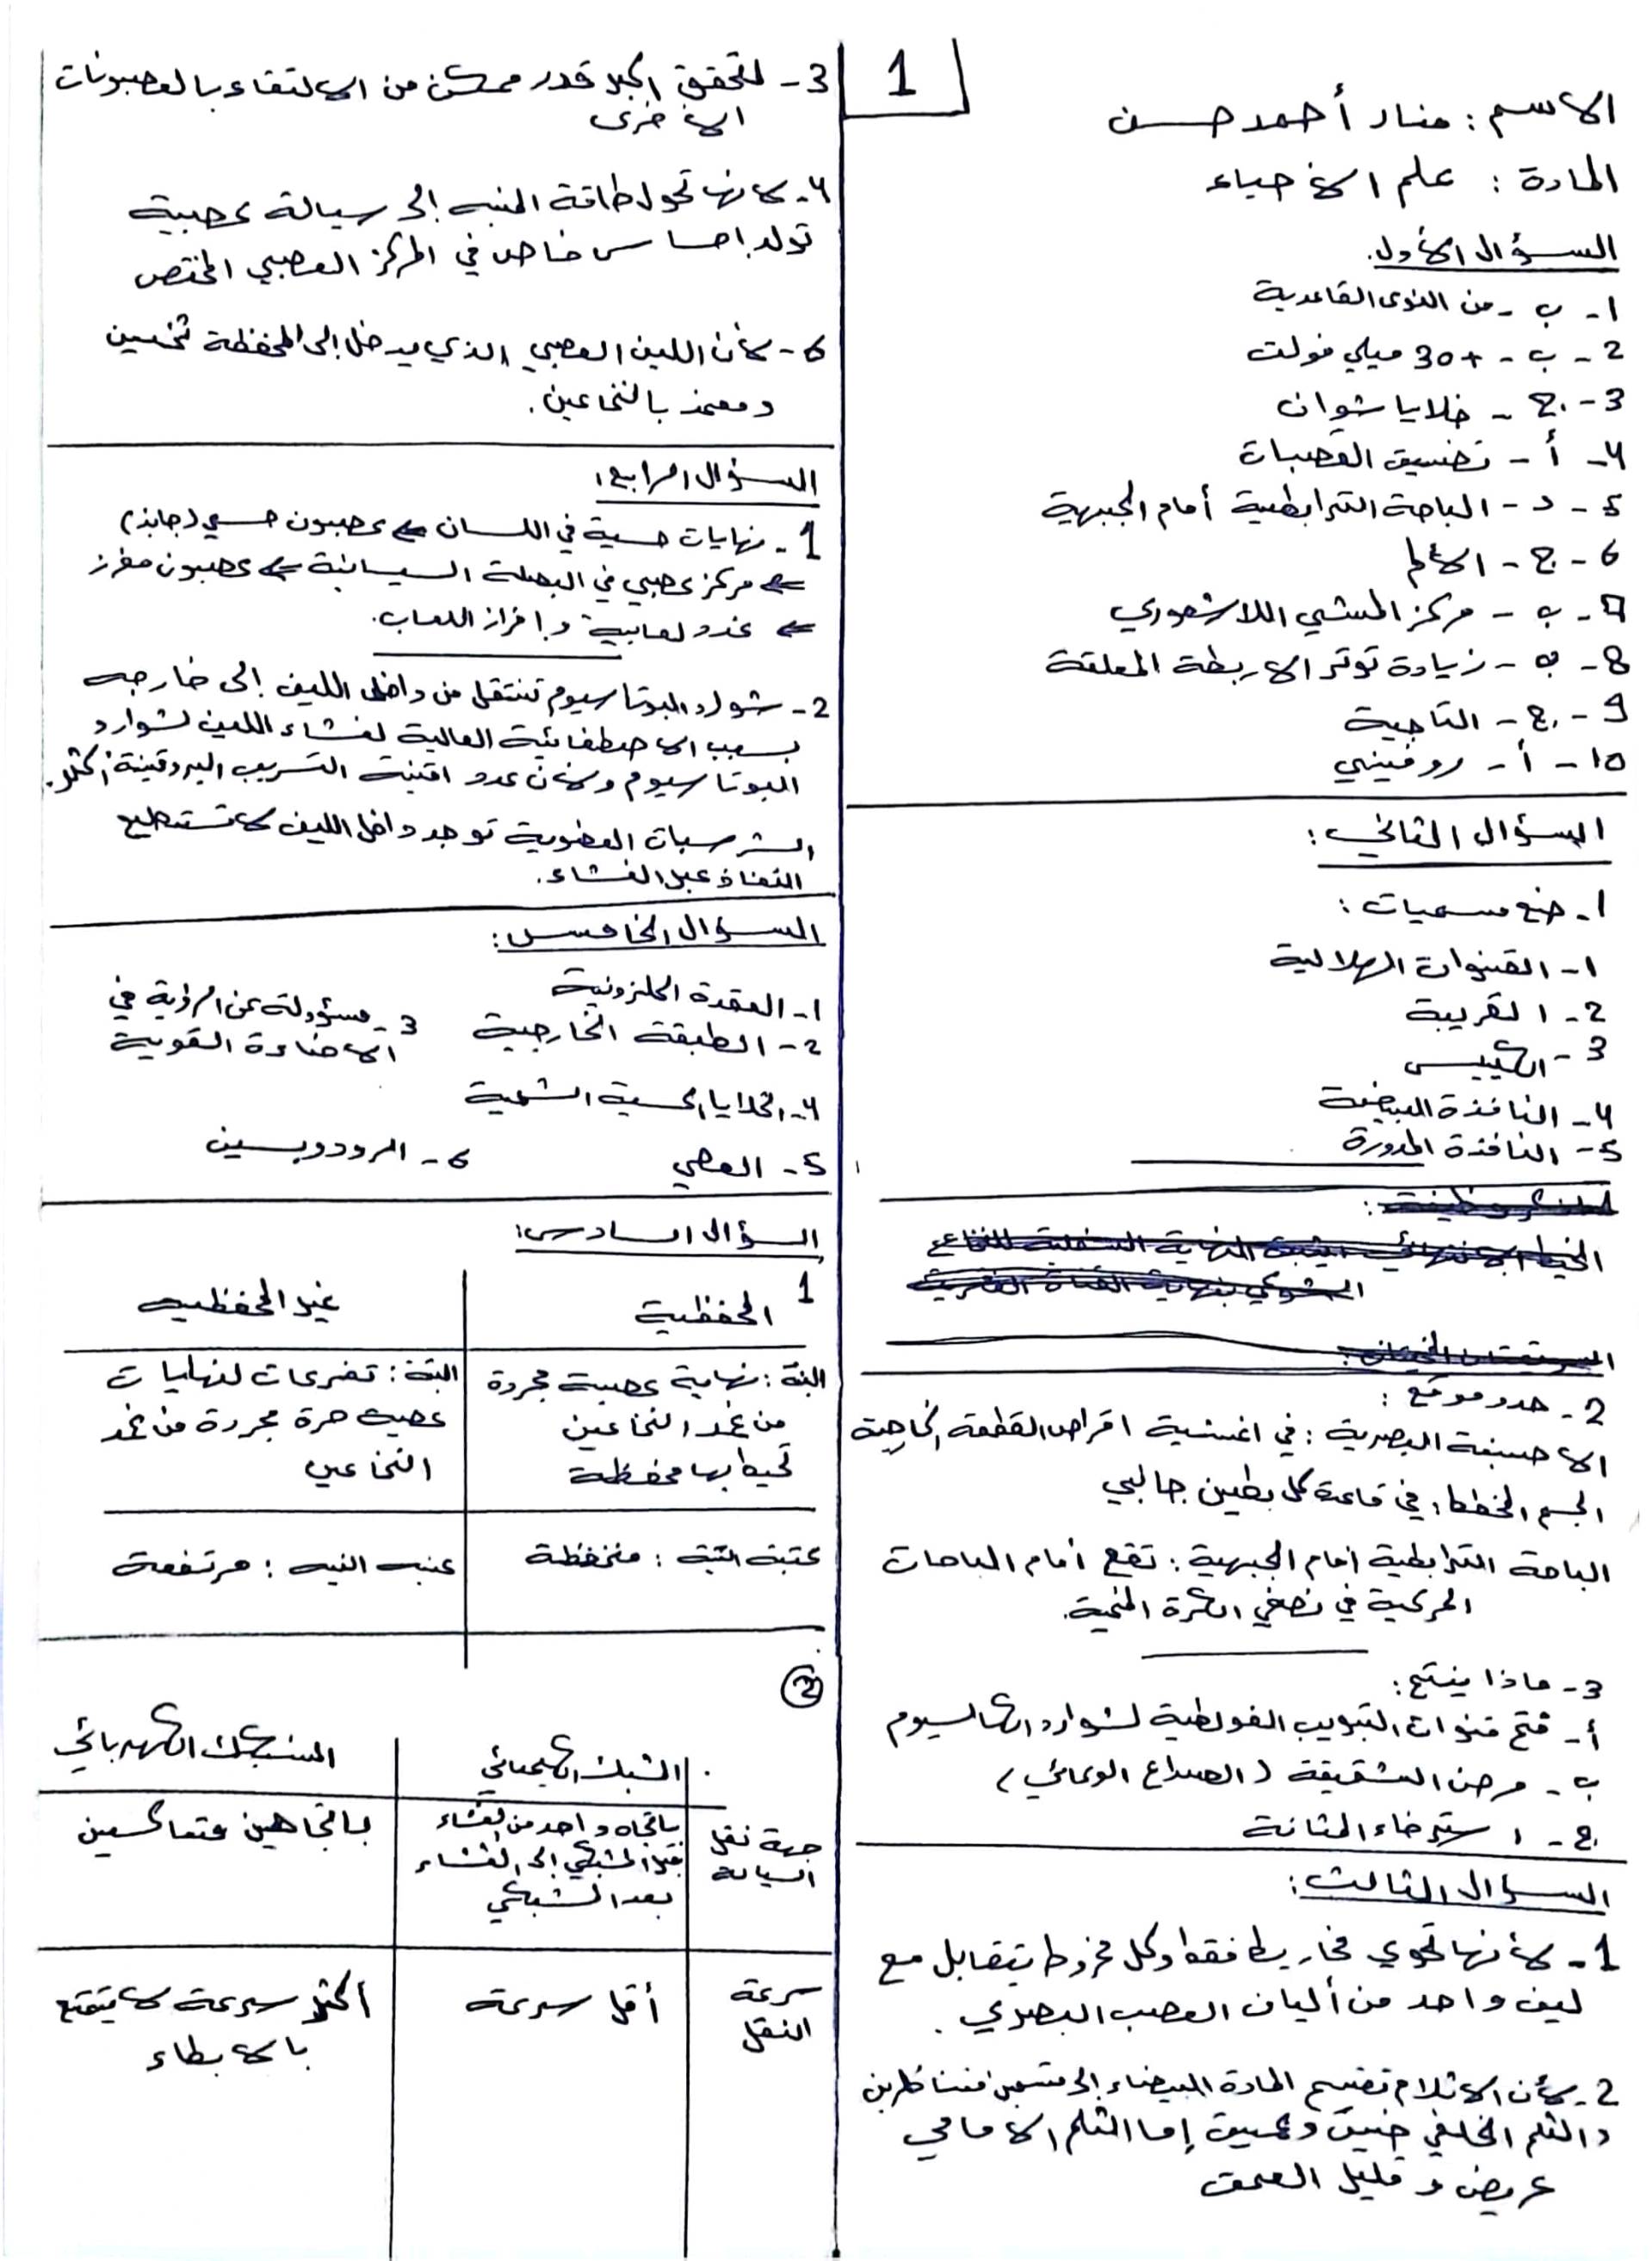 1
الاسم : منار أحمد حسن
المادة : علم الأحياء
السؤال الأول.
1- ب - من النوى القاعدية
2 - ب - +30 ميلي فولت
3 - ج - خلايا شوان
4- أ - تضييق القصبات
5 - د - الباحة الترابطية أمام الجبهية
6 - ج - الألم
7 - ب - مركز المشي اللاشعوري
8 - ب - زيادة توتر الاربطة المعلقة
9 - ج - التاجية
10 - أ - روفيني
السؤال الثاني :
1- ضع مسميات :
1- القنوات الهلالية
2 - القريبة
3 - الكييس
4- النافذة البيضية
5- النافذة المدورة
2 - حدد موقع :
الاصبغة البصرية : في اغشية اقراص القطعة الخارجية
الجسم المخطط : في قاعدة كل بطين جانبي
الباحة الترابطية أمام الجبهية : تقع أمام الباحات
الحركية في نصفي الكرة المخية.
3 - ماذا ينتج :
أ - فتح قنوات التبويب الفولطية لشوارد الكالسيوم
ب - مرض الشقيقة (الصداع الوعائي)
ج - استرخاء المثانة
السؤال الثالث :
1- لأنها تحوي مخاريط فقط وكل مخروط يتقابل مع
ليف واحد من ألياف العصب البصري .
2- لأن الاثلام تقسم المادة البيضاء إلى قسمين متناظرين
والثلم الخلفي ضيق وعميق إما الثلم الامامي
عريض و قليل العمق
3 - لتحقق اكبر قدر ممكن من الالتقاء بالعصبونات
الاخرى
4- لانها تحول طاقة المنبه إلى سيالة عصبية
تولد احساس خاص في المركز العصبي المختص
6 - لأن الليف العصبي الذي يدخل إلى المحفظة ثخين
ومغمد بالنخاعين .
السؤال الرابع :
1 - نهايات حسية في اللسان ⇐ عصبون حسي (جابذ)
⇐ مركز عصبي في البصلة السيسائية ⇐ عصبون مفرز
⇐ غدد لعابية و إفراز اللعاب.
2 - شوارد البوتاسيوم تنتقل من داخل الليف إلى خارجه
بسبب الاصطفائية العالية لغشاء الليف لشوارد
البوتاسيوم ولأن عدد اقنية التسريب البروتينية أكثر.
الشرسبات العضوية توجد داخل الليف لا تستطيع
النفاذ عبر الغشاء.
السؤال الخامس :
1- العقدة الحلزونية
2 - الطبقة الخارجية
3 - مسؤولة عن الرؤية في
الاضاءة القوية
4- الخلايا الحسية الشمية
5 - العصي
6 - الرودوبسين
السؤال السادس :
1
المحفظية
غير المحفظيه
البنية : نهاية عصبية مجردة
من غمد النخاعين
تحيط بها محفظة
البنية : تفرعات لنهايات
عصبية حرة مجردة من غمد
النخاعين
عتبة التنبه : منخفظة
عتبه التنبه : مرتفعة
2
الشبك الكيميائي
المشبك الكهربائي
جهة نقل
السيالة
باتجاه واحد من الغشاء
قبل المشبكي إلى الغشاء
بعد المشبكي
باتجاهين متعاكسين
سرعة
النقل
أقل سرعة
أكثر سرعة لا يتمتع
بالابطاء